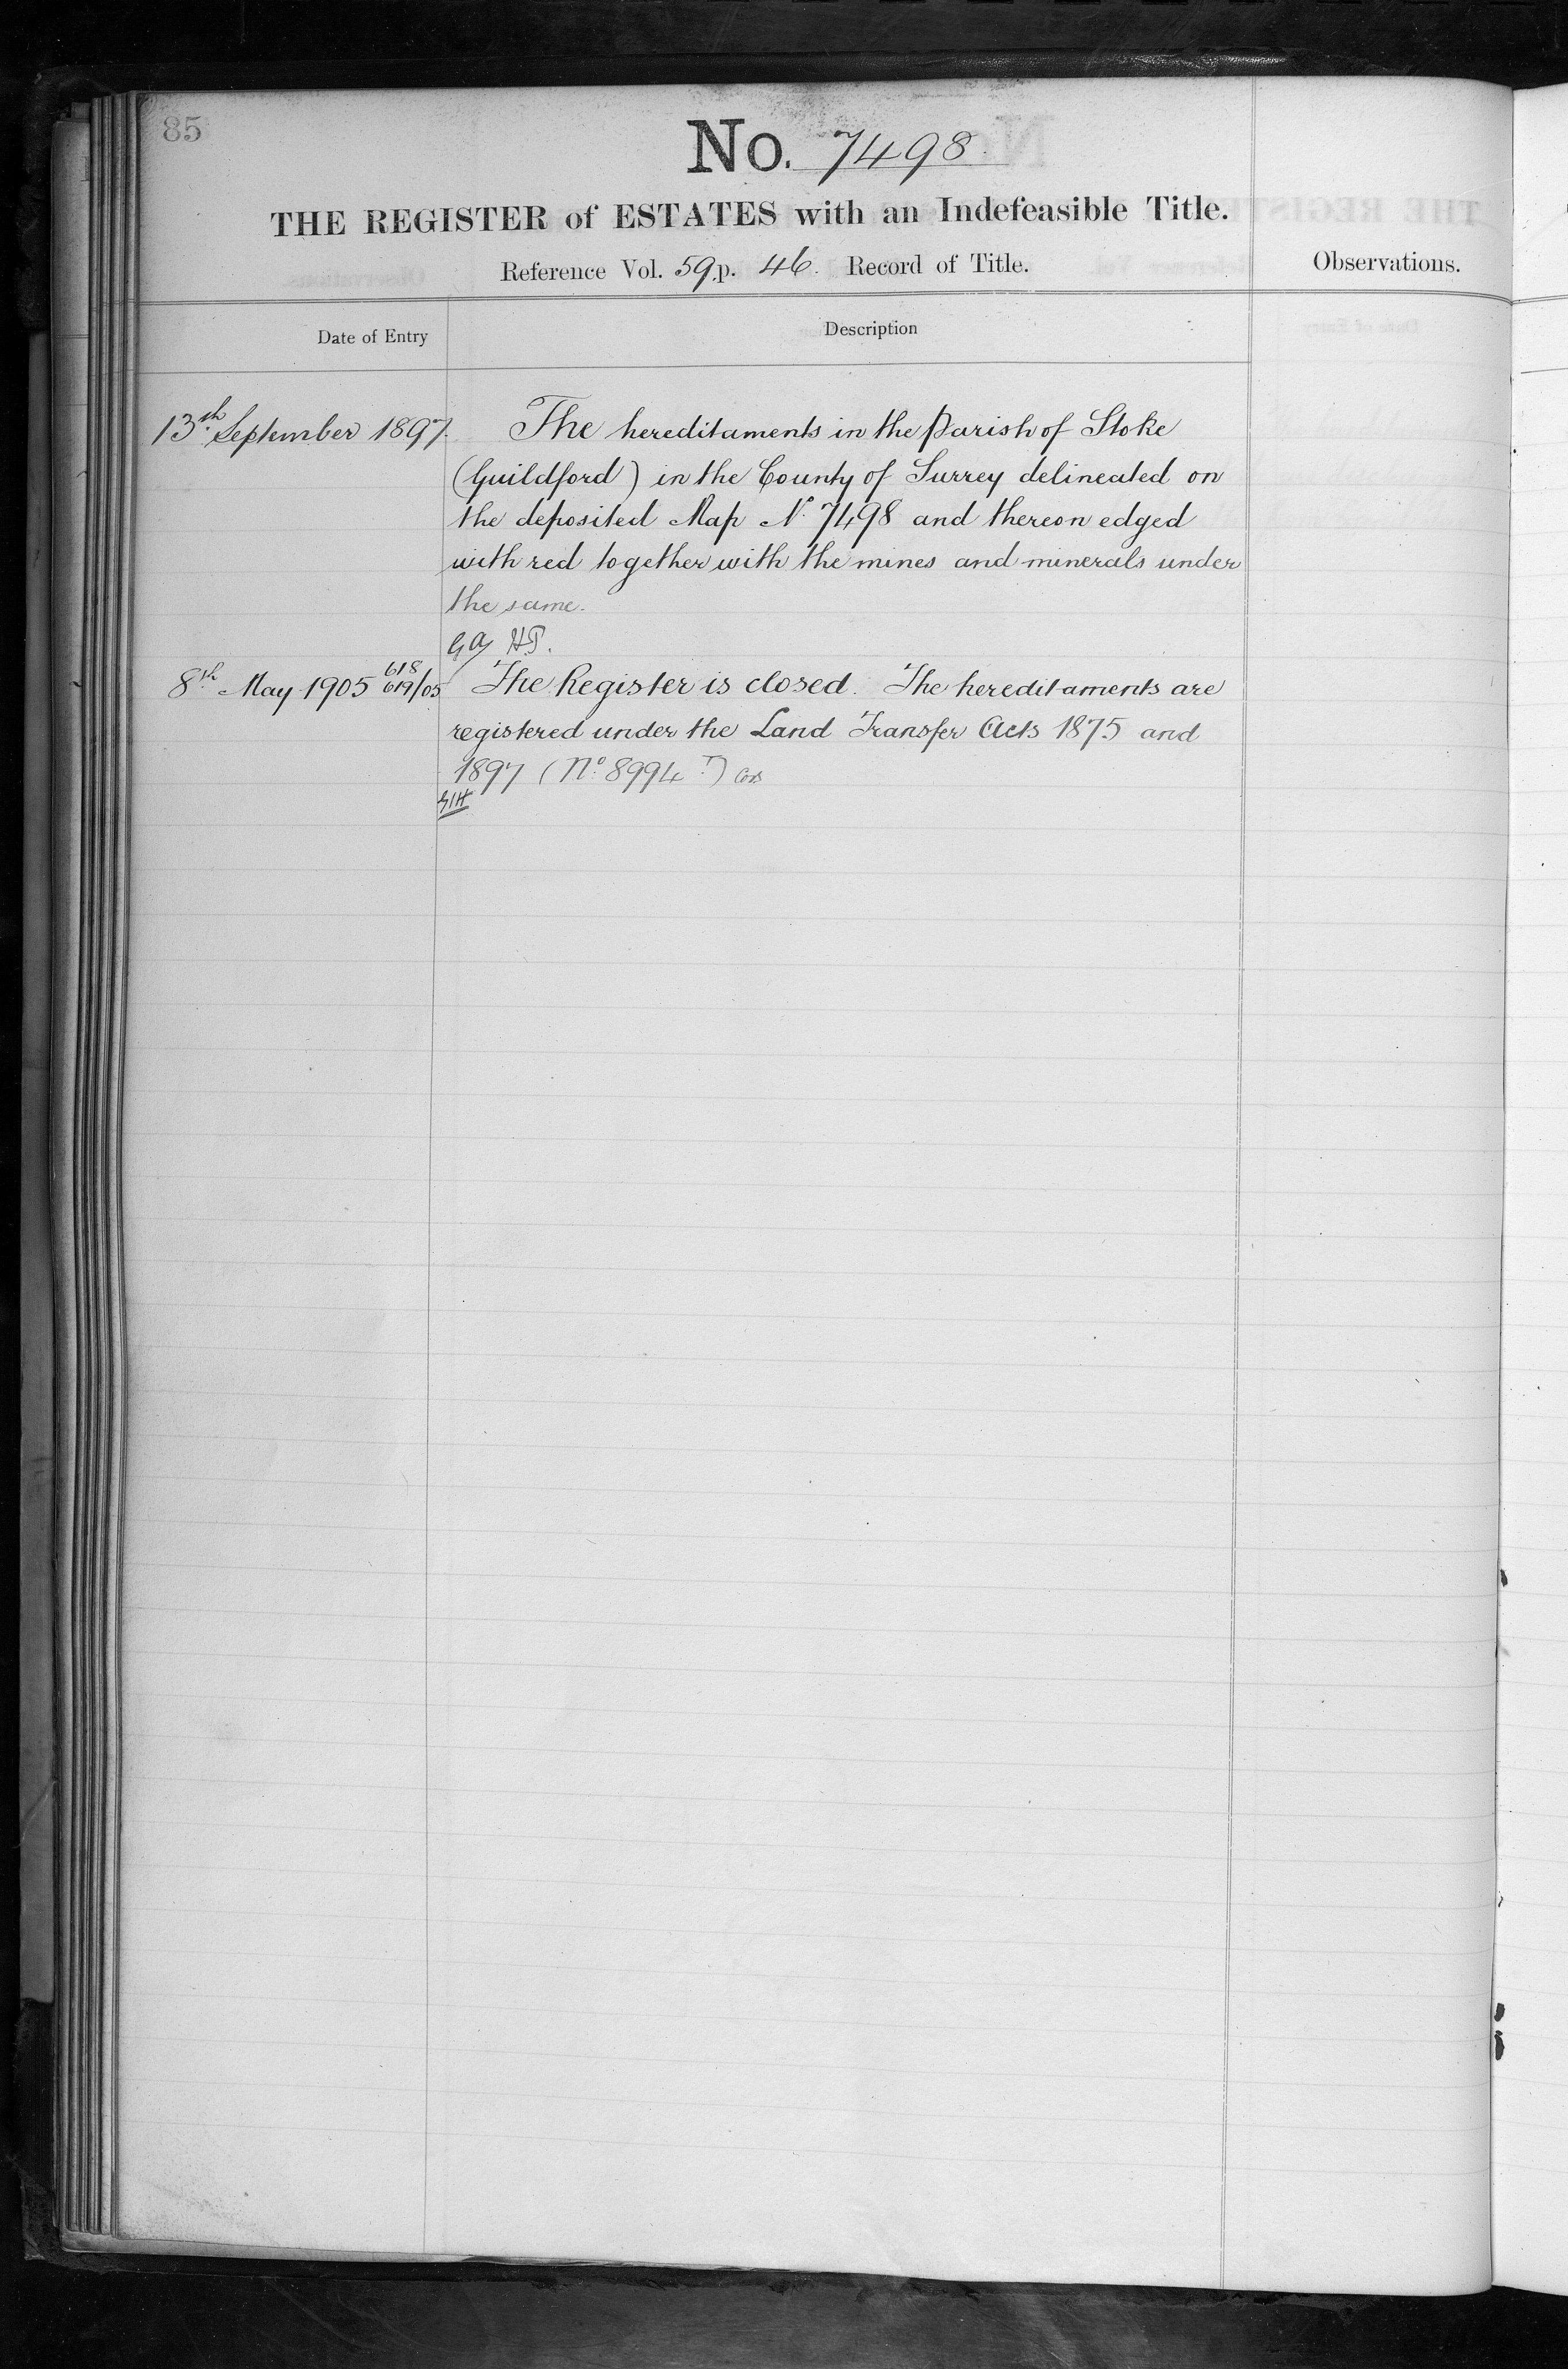 85
No. 7498.
THE REGISTER of ESTATES with an Indefeasible Title.
Reference Vol. 59 p. 46. Record of Title.
Observations.
Date of Entry
Description
13th September 1897.
The hereditaments in the Parish of Stoke
(Guildford) in the County of Surrey delineated on
the deposited Map No. 7498 and thereon edged
with red together with the mines and minerals under
the same.
H.P.
8th May 1905 618 619/05
The Register is closed. The hereditaments are
registered under the Land Transfer Acts 1875 and
1897 (No. 8994 T)